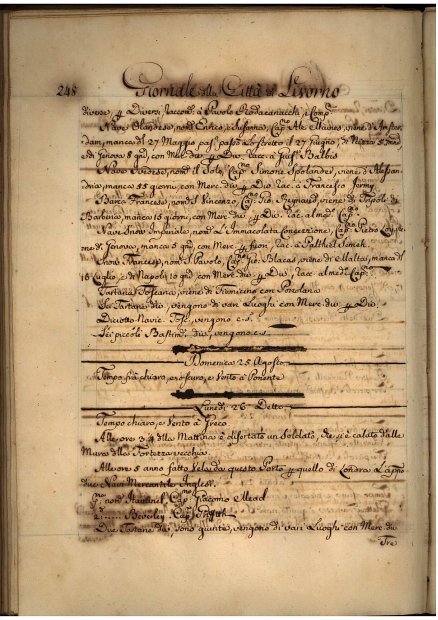 248 Giornale della Città di Livorno
diverse, p Diversi, raccom. à Pavolo Prodacanacchi, e Comp.
Nave Olandese, nom. Enrico, e Susanna, Cap. Ale viene d'Amster
dam, manca dal 27 Maggio pass. passò Lo Stretto il 27 Giugno, di Nizza 5. mesi
e di Genova 5 gni, con Mer. div. p Div. rac. à Balbis
Nave Svedese, nom. il Sole, Cap. Simone Spolander, viene d'Alessan
dria, manca 55 giorni, con Merc. div. p Div. rac. à Francesco Jermy
Barca Francese, nom. S. Vincenzo, Cap. Gio. viene di Tripoli di
Barberia, manca 15 giorni, con Merc. div. p Div. rac. al med. Cap.
Nave Imperiale, nom. L'Immacolata Concezione, Cap. Pietro
ne di Genova, manca 5 gni, con Merc. p rac. à
Francese, nom. S. Pavolo, Cap. Gio. Blacas, viene di Malta, manca dal
15 Luglio, e di Napoli 10 gni, con Merc. div. p Div. rac. al med. Cap.
Tartana Toscana, viene di Fiumicino con Pozzolana
Sei Tartane div. vengono di vari Luoghi con Merc. div. p Div.
Diciotto Navic. Tosc. vengono c. s.
Sei piccoli Bastim. div. vengono c. s.
Domenica 25 Agosto
Tempo frà chiaro, e oscuro, e Vento à Ponente
Lunedì 26 Detto
Tempo chiaro, e Vento à Greco
Alle ore 3 4 della Mattina è disertato un Soldato, che si è calato dalle
Mura della Fortezza vecchia.
Alle ore 5 anno fatto Vela da questo Porto p quello di Londra l'appie
due Navi Mercantili Inglesi.
nom. Cap. Giacomo Mead
2. Beverley. Cap.
Due Tartane div. sono giunte, vengono di vari Luoghi con Merc. div.
Tre